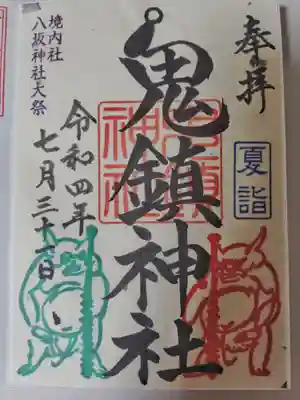 奉拝
夏詣
鬼鎮神社
鬼鎮神社
令和四年
七月三十一日
境内社
八坂神社大祭